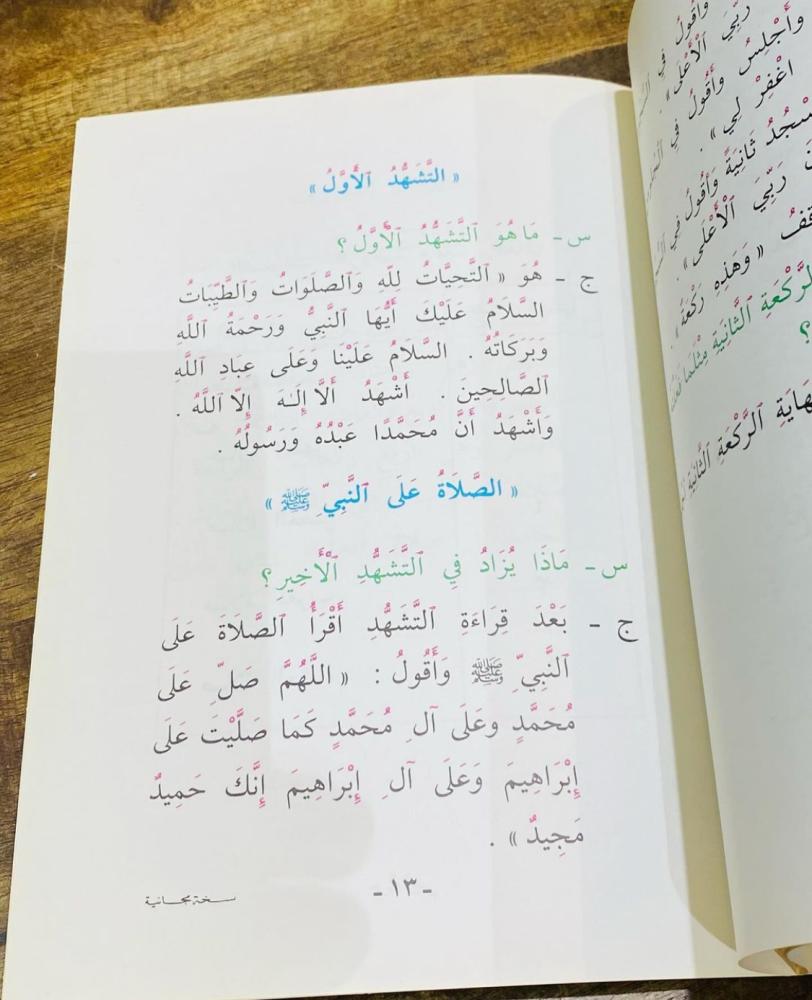 « التَّشَهُّدُ ٱلْأَوَّلُ »
س - مَا هُوَ ٱلتَّشَهُّدُ ٱلْأَوَّلُ ؟
ج - هُوَ « ٱلتَّحِيَّاتُ لِلَّهِ وَٱلصَّلَوَاتُ وَٱلطَّيِّبَاتُ
السَّلَامُ عَلَيْكَ أَيُّهَا ٱلنَّبِيُّ وَرَحْمَةُ ٱللَّهِ
وَبَرَكَاتُهُ . السَّلَامُ عَلَيْنَا وَعَلَى عِبَادِ ٱللَّهِ
ٱلصَّالِحِينَ . أَشْهَدُ أَلَّا إِلَـٰهَ إِلَّا ٱللَّهُ .
وَأَشْهَدُ أَنَّ مُحَمَّدًا عَبْدُهُ وَرَسُولُهُ .
« الصَّلَاةُ عَلَى ٱلنَّبِيِّ ﷺ »
س - مَاذَا يُزَادُ فِي ٱلتَّشَهُّدِ ٱلْأَخِيرِ ؟
ج - بَعْدَ قِرَاءَةِ ٱلتَّشَهُّدِ أَقْرَأُ ٱلصَّلَاةَ عَلَى
ٱلنَّبِيِّ ﷺ وَأَقُولُ : « اللَّهُمَّ صَلِّ عَلَى
مُحَمَّدٍ وعَلَى آلِ مُحَمَّدٍ كَمَا صَلَّيْتَ عَلَى
إِبْرَاهِيمَ وَعَلَى آلِ إِبْرَاهِيمَ إِنَّكَ حَمِيدٌ
مَجِيدٌ » .
- ١٣ -
نسخة مجانية
وَأَقُولُ فِي
رَبِّيَ ٱلْأَعْلَى » .
وَأَجْلِسُ وَأَقُولُ فِي
اغْفِرْ لِي » .
ثَانِيَةً وَأَقُولُ فِي
رَبِّيَ ٱلْأَعْلَى » .
« وَهَذِهِ رَكْعَةٌ » .
ٱلرَّكْعَةِ ٱلثَّانِيَةِ مِثْلَمَا
؟
ٱلرَّكْعَةِ ٱلثَّانِيَةِ